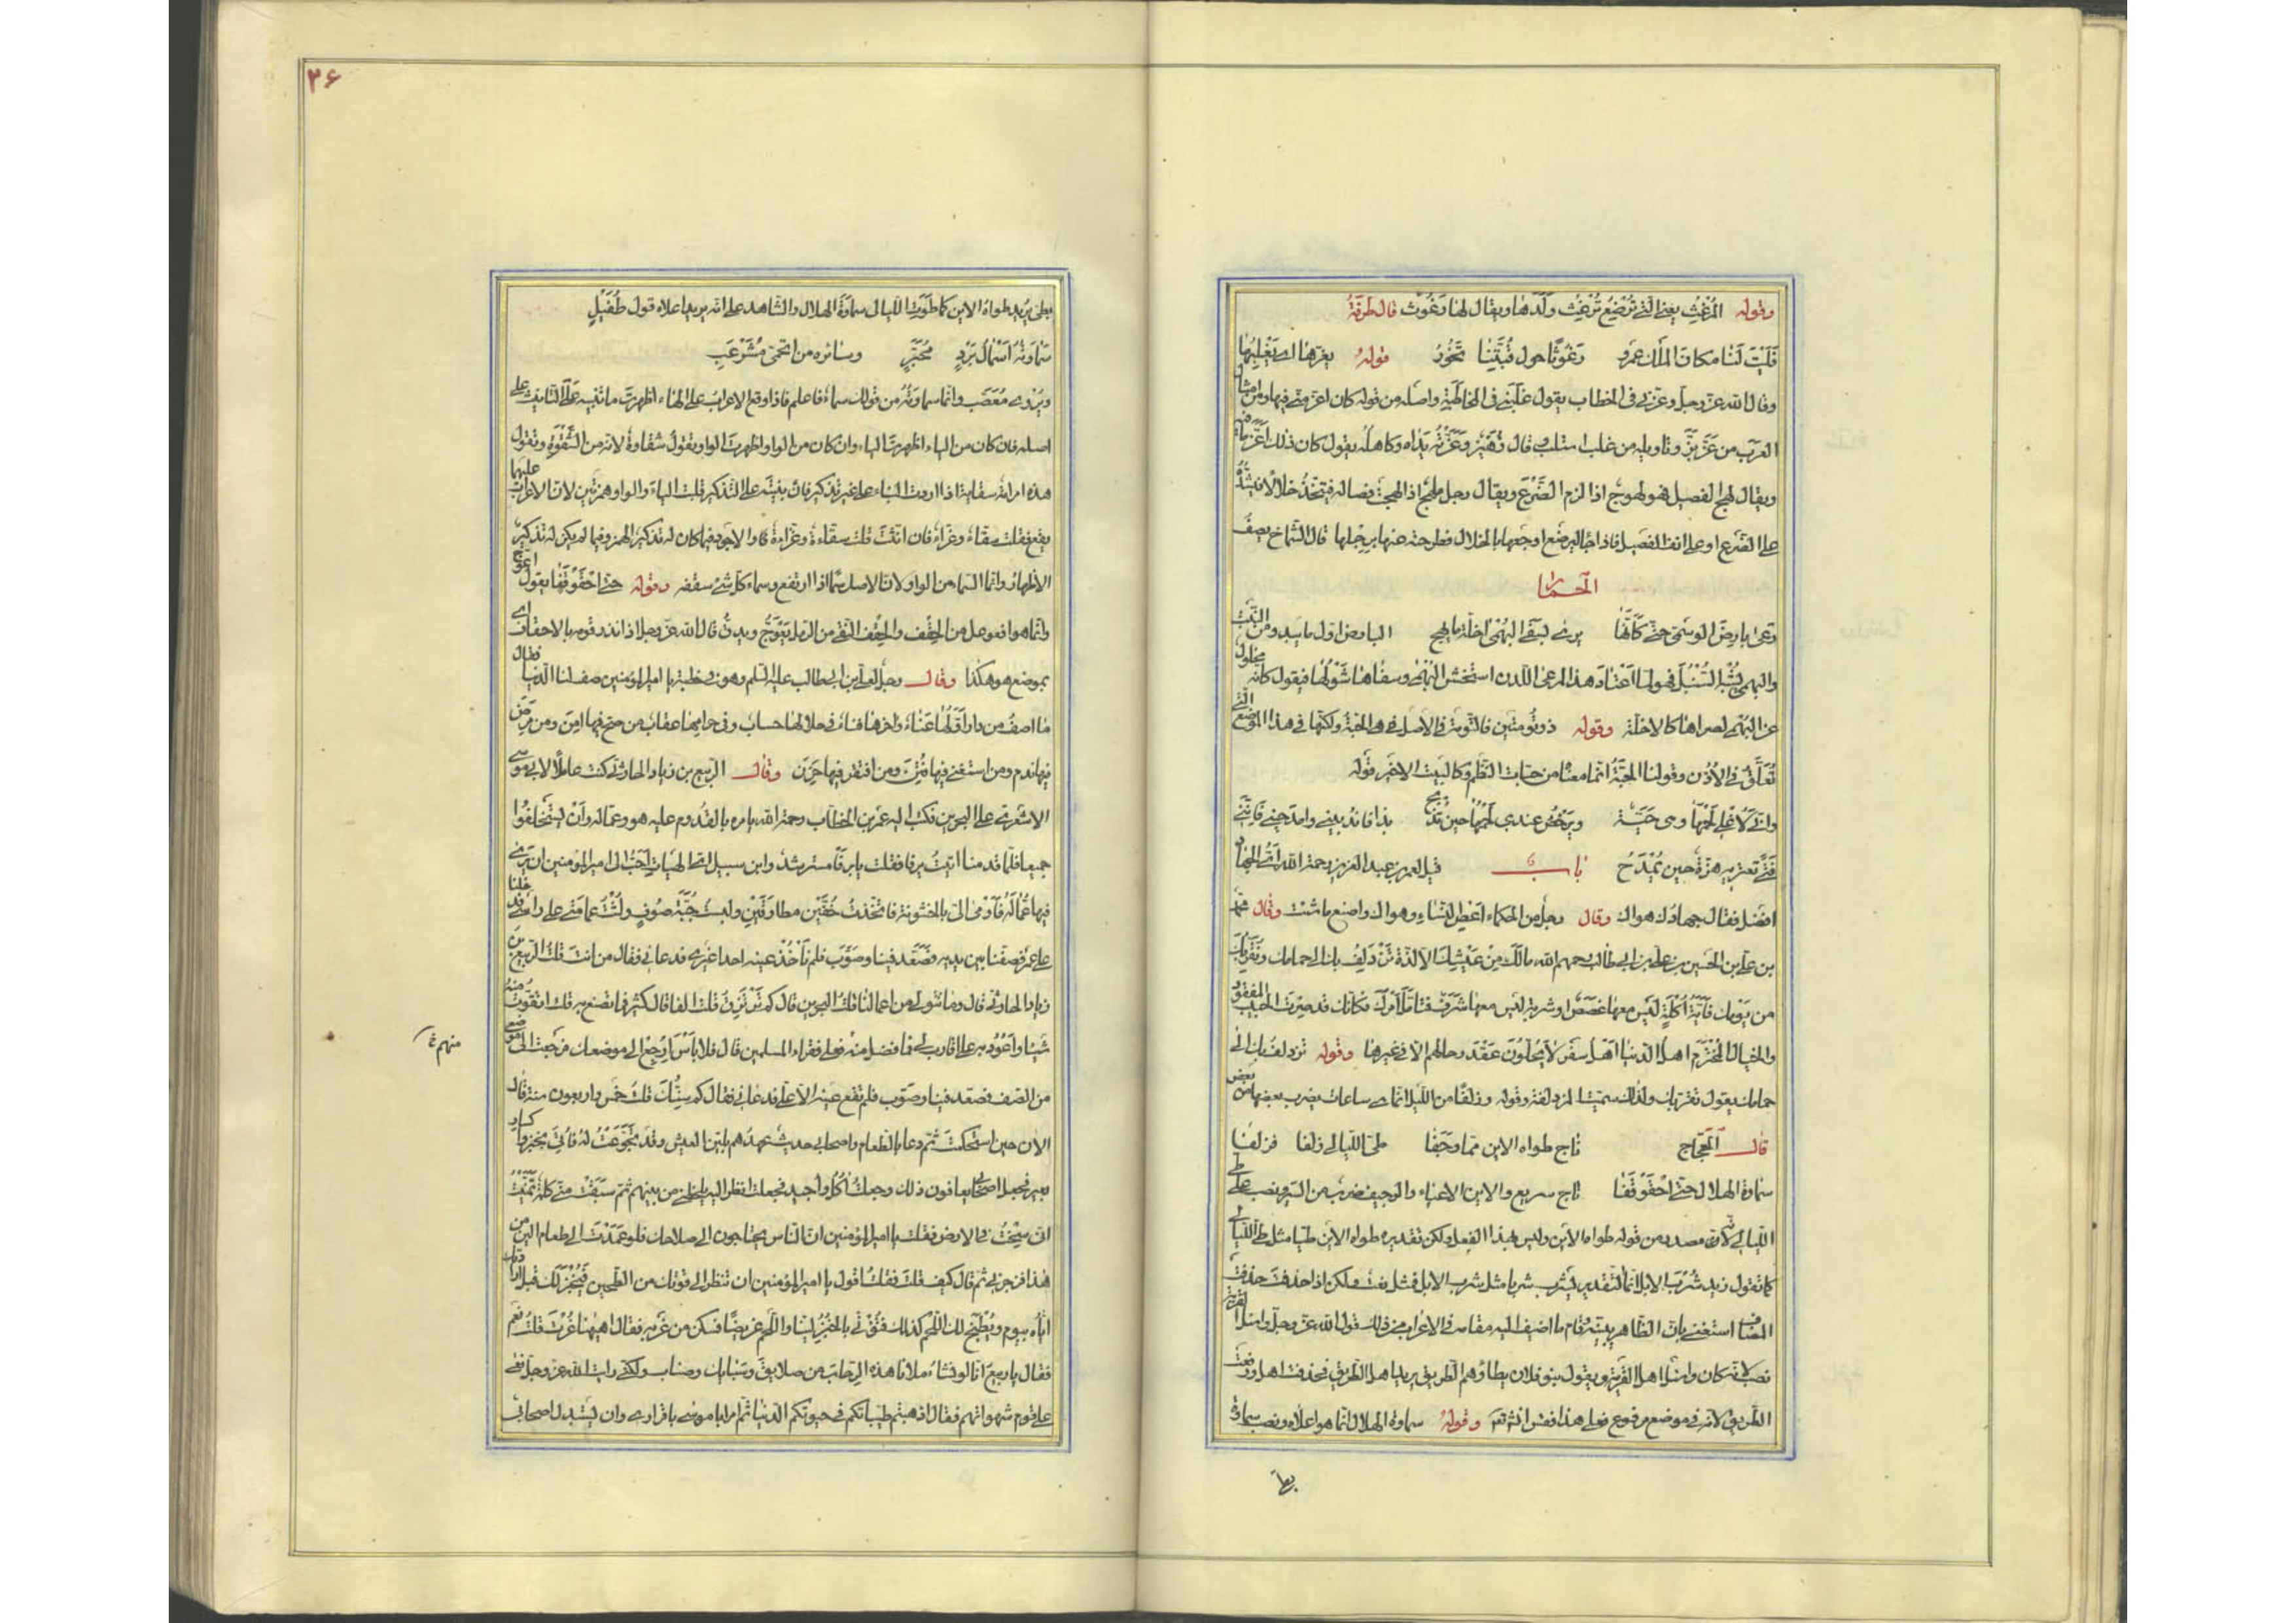 وقوله المرغث يعنى التى ترضع ترغث ولدها ويقال لها رغوث قال طرفة
فَلَيْتَ لَنا مكانَ المَلْكِ عَمرو رَغُوثًا حول قُبَّتِنا تَخُورُ قوله يعزها اى يغلبها
وقال الله عز وجل وعزنى فى الخطاب يقول غلبنى فى المخاطبة واصله من قوله كان اعز منى فيها ومن امثال
العرب من عَزَّ بَزَّ وتاويله من غلب استلب قال زُهَيْر وعَزَّتْهُ يَداه وكاهله يقول كان ذلك اعز ما فيه
ويقال لهج الفصيل فهو لهوج اذا لزم الضرع ويقال رجل ملهج اذا لهجت فصاله فيتخذ خلالا فيشده
على الضرع او على انف الفصيل فاذا جاء ليرضع اوجعها بالخلال فطرحته عنها برجلها قال الشماخ يصف
الحمار
رعى بارض الوسمى حتى كأنما يرى بسقى البهمى اخلة ملهج البارض اول ما يبدو من النبت
والبهمى يشبه السنبل فهو لما اعتاد هذا المرعى اللدن استخشن البهمى وسفاها شوكها فيقول كانه مخلول
عن البهمى لصراها كالاخلة وقوله ذو تومتين فالتومة فى الاصل هى الحبة ولكنها فى هذا الموضع التى
تُعَلَّق فى الاُذُن وقولنا الحبة انما معناه من حبات النظم وكالبيت الاخير قوله
وانى لاُغلى لحمها وهى حية ويرخص عندى لحمها حين تذبح بذا فاندبينى وامدحينى فاننى
فَتًى تعتريه هزة حين يُمْدَحُ باب قيل لعمر بن عبد العزيز رحمة الله اى الجهاد
افضل فقال جهادك هواك وقال رجل من الحكماء اعص النساء وهواك واصنع ما شئت وقال محمد
بن على بن الحسين بن على بن ابى طالب رحمهم الله مالك من عيشك الا لذة تزدلف بك الى حمامك وتقربك
من يومك فاية اكلة ليس معها غصص او شربة ليس معها شرق فتأمل امرك فكانك قد صرت الحبيب المفقود
والخيال المخترم اهل الدنيا اهل سفر لا يحلون عقد رحالهم الا فى غيرها وقوله تزدلف بك الى
حمامك يقول تقربك ولذلك سميت المزدلفة وقوله وزلفا من الليل انما هى ساعات يقرب بعضها من بعض
قال العجاج ناج طواه الاين مما وجفا طى الليالى زلفا فزلفا
سماوة الهلال حتى احقوقفا ناج سريع والاين الاعياء والوجيف ضرب من السير ونصب طى
الليالى لانه مصدر من قوله طواه الاين وليس بهذا الفعل ولكن تقديره طواه الاين طيا مثل طى الليالى
كما تقول زيد شُرْبَ الابل انما التقدير يشرب شربا مثل شرب الابل فمثل نعت ولكن اذا حذفت حذفت
المضاف استغنى بان الظاهر يبينه وقام ما اضيف اليه مقامه فى الاعراب من ذلك قول الله عز وجل واسئل القرية
نصب لانه كان واسئل اهل القرية ويقول بنو فلان يطاؤهم الطريق يريد اهل الطريق فحذفت اهل ورفعت
الطريق لانه فى موضع مرفوع فعلى هذا فقس ان شئت وقوله سماوة الهلال انما هو اعلاه ونصب سماوة
بطى
٣۶
بطى يريد طواه الاين كما طوت الليالى سماوة الهلال والشاهد على انه يريد اعلاه قول طفيل
سَماوَتُه اَسْمالُ بُرْدٍ مُحَبَّرٍ وسائره من اتحمى مشرعب
ويروى معصب وانما سماوته من قولك سماء فاعلم فاذا وقع الاعراب على الهاء اظهرت ما تبنيه على التانيث على
اصله فان كان من الياء اظهرت الياء وان كان من الواو اظهرت الواو وتقول شقاوة لانه من الشقوة وتقول
هذه امراة سقاية اذا اردت البناء على غير تذكير فان بنيته على التذكير قلبت الياء والواو همزتين لان الاعراب عليهما
يقع فقلت سقاء وغزاء فان انثت قلت سقاءة وغزاءة فالاجود فيما كان له تذكير الهمز وفيما لم يكن له تذكير
الاظهار وانما السماء من الواو لان الاصل سما اذا ارتفع وسماء كل شئ سقفه وقوله حتى احقوقفا يقول اعوج
وانما هو افعوعل من الحقف والحقف النقى من الرمل يعوج ويدق قال الله عز وجل اذ انذر قومه بالاحقاف اى
بموضع هو هكذا وقال رجل لعلى بن ابى طالب عليه السلم وهو فى خطبة يا امير المؤمنين صف لنا الدنيا فقال
ما اصف من دار اولها عناء واخرها فناء فى حلالها حساب وفى حرامها عقاب من صح فيها امن ومن مرض
فيها ندم ومن استغنى فيها فتن ومن افتقر فيها حزن وقال الربيع بن زياد الحارثى كنت عاملا لابى موسى
الاشعرى على البحرين فكتب اليه عمر بن الخطاب رحمة الله يامره بالقدوم عليه هو وعماله وان يستخلفوا
جميعا فلما قدمنا اتيت يرفا فقلت يا يرفا مسترشد وابن سبيل اى الهيات احب الى امير المؤمنين ان يرى
فيها عماله فاومى الى بالخشونة فاتخذت خفين مطارقين ولبست جبة صوف ولثت عمامتى على راسى فدخلنا
على عمر فصفنا بين يديه فصعد فينا وصوب فلم تاخذ عينه احدا غيرى فدعانى فقال من انت قلت الربيع بن
زياد الحارثى قال وما تتولى من اعمالنا قلت البحرين قال كم ترتزق قلت الفا قال كثير فما تصنع به قلت اتقوت منه
شيئا واعود به على اقارب لى فما فضل منه فعلى فقراء المسلمين قال فلا باس ارجع الى موضعك فرجعت الى موضعى
من الصف فصعد فينا وصوب فلم تقع عينه الا على فدعانى فقال كم سِنُّك قلت خمس واربعون سنة قال
الان حين استحكمت ثم دعا بالطعام واصحابى حديث عهدهم بلين العيش وقد تجوعت له فاتى بخبز واكسار
بعير فجعل اصحابى يعافون ذلك وجعلت اكل واجيد فجعلت انظر اليه يلحظنى من بينهم ثم سبقت منى كلمة تمنيت
انى سخت فى الارض فقلت يا امير المؤمنين ان الناس يحتاجون الى صلاحك فلو عمدت الى طعام الين من
هذا فزجرنى ثم قال كيف قلت فقلت اقول يا امير المؤمنين ان تنظر الى قوتك من الطحين فيخبز لك قبل ارادتك
اياه بيوم ويطبخ لك اللحم كذلك فتؤتى بالخبز لينا واللحم غريضا فسكن من غربه فقال اههنا غرت قلت نعم
فقال يا ربيع انا لو نشاء ملانا هذه الرحاب من صلايق وسبايك وصناب ولكنى رايت الله عز وجل نعى
على قوم شهواتهم فقال اذهبتم طيباتكم فى حيوتكم الدنيا ثم امر ابا موسى باقرارى وان يستبدل اصحابى
منهم